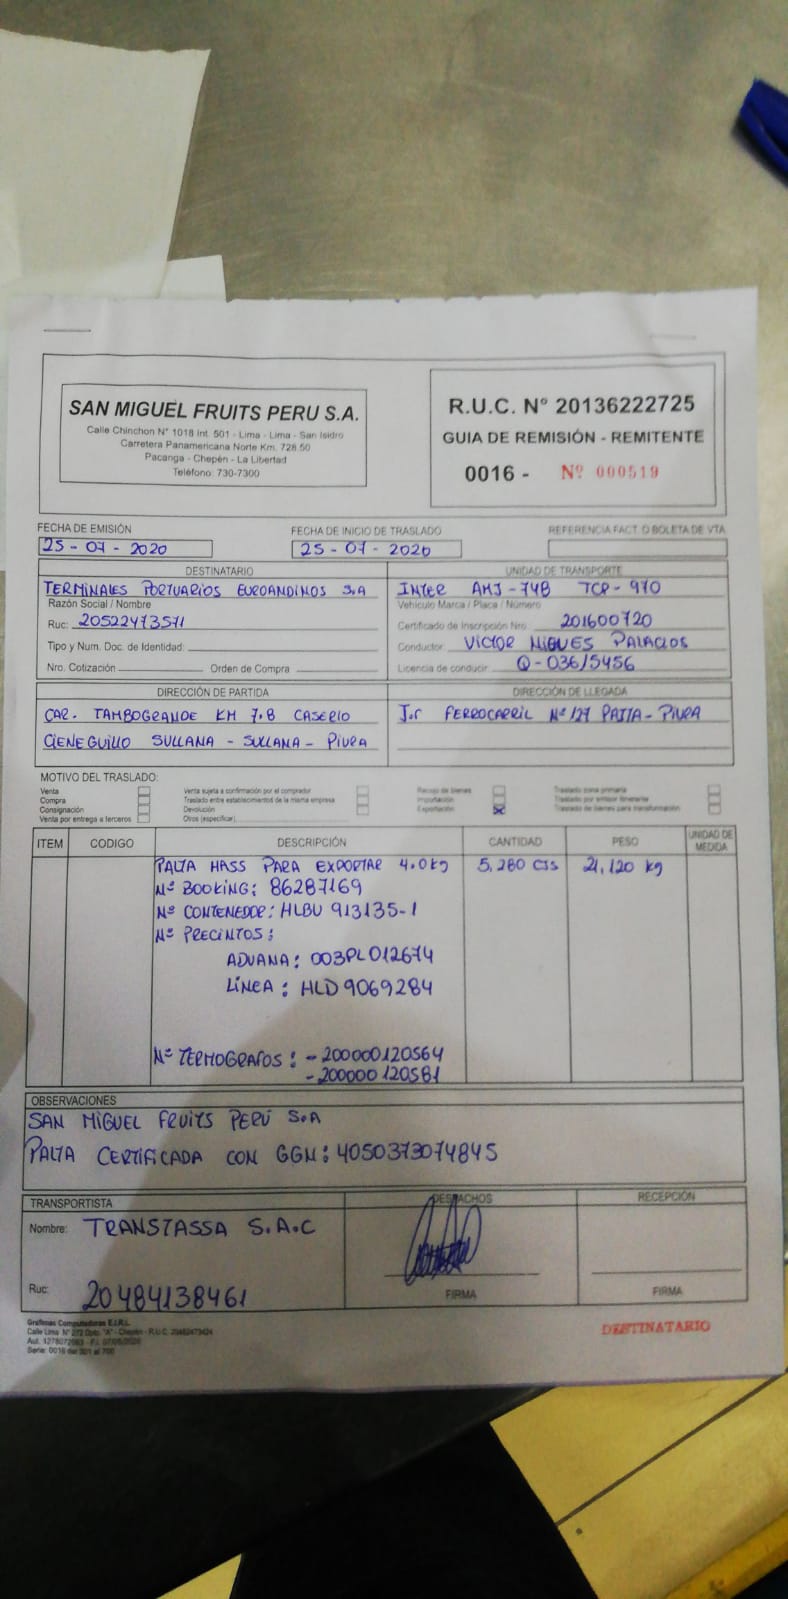 SAN MIGUEL FRUITS PERU S.A.
Calle Chinchon N° 1018 Int. 501 - Lima - Lima - San Isidro
Carretera Panamericana Norte Km. 728.50
Pacanga - Chepén - La Libertad
Teléfono: 730-7300
R.U.C. N° 20136222725
GUIA DE REMISIÓN - REMITENTE
0016 - Nº 000519
FECHA DE EMISIÓN
25 - 07 - 2020
FECHA DE INICIO DE TRASLADO
25 - 07 - 2020
REFERENCIA FACT. O BOLETA DE VTA
DESTINATARIO
TERMINALES PORTUARIOS EUROANDINOS S.A
Razón Social / Nombre
Ruc: 20522473571
Tipo y Num. Doc. de Identidad:
Nro. Cotización Orden de Compra
UNIDAD DE TRANSPORTE
INTER AHJ-748 TCP-970
Vehículo Marca / Placa / Número
Certificado de Inscripción Nro. 201600720
Conductor: VICTOR NIQUES PALACIOS
Licencia de conducir Q-03615456
DIRECCIÓN DE PARTIDA
CAR. TAMBOGRANDE KM 7.8 CASERIO
CIENEGUILLO SULLANA - SULLANA - PIURA
DIRECCIÓN DE LLEGADA
J.r FERROCARRIL Nº 127 PAITA - PIURA
MOTIVO DEL TRASLADO:
Venta
Compra
Consignación
Venta por entrega a terceros
Venta sujeta a confirmación por el comprador
Traslado entre establecimientos de la misma empresa
Devolución
Otros (especificar)
Recojo de bienes
Importación
Exportación X
Traslado zona primaria
Traslado por emisor itinerante
Traslado de bienes para transformación
ITEM CODIGO DESCRIPCIÓN CANTIDAD PESO UNIDAD DE MEDIDA
PALTA HASS PARA EXPORTAR 4.0Kg 5,280 CJS 21,120 Kg
Nº BOOKING: 86287169
Nº CONTENEDOR: HLBU 913135-1
Nº PRECINTOS:
ADUANA: 003PL012674
LÍNEA: HLD 9069284
Nº TERMOGRAFOS: - 200000120564
- 200000120581
OBSERVACIONES
SAN MIGUEL FRUITS PERÚ S.A
PALTA CERTIFICADA CON GGN: 4050373074845
TRANSPORTISTA
Nombre: TRANSTASSA S.A.C
Ruc: 20484138461
DESPACHOS
FIRMA
RECEPCIÓN
FIRMA
Graficas Computadoras E.I.R.L.
Calle Lima N° 272 Dpto. "A" - Chepén - R.U.C. 20482473424
Serie: 0016 del 501 al 700
DESTINATARIO